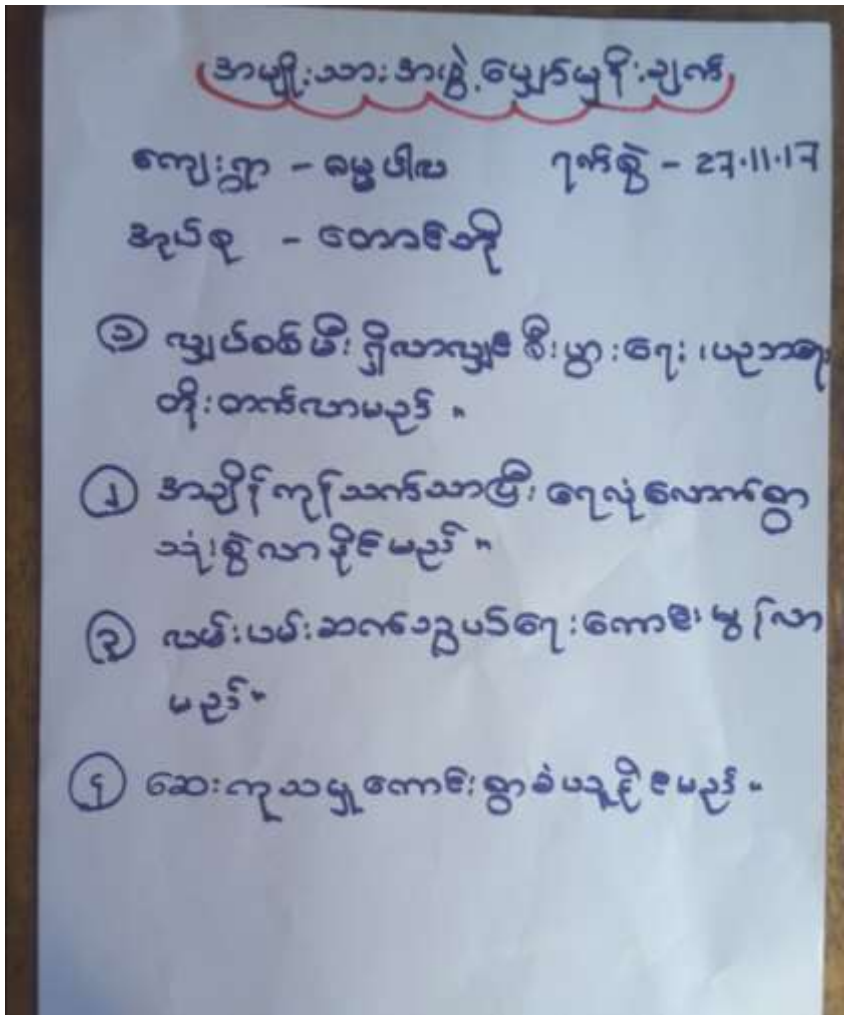 အမျိုးသားအဖွဲ့မျှော်မှန်းချက်
ကျေးရွာ - ဓမ္မပါလ ရက်စွဲ - 27.11.17
အုပ်စု - တောင်ဘို
၁ လျှပ်စစ်မီးရှိလာလျှင် စီးပွားရေး၊ ပညာရေး
တိုးတက်လာမည်။
၂ အချိန်ကုန်သက်သာပြီး ရေလုံလောက်စွာ
သုံးစွဲလာနိုင်မည်။
၃ လမ်းပမ်းဆက်သွယ်ရေးကောင်းမွန်လာ
မည်။
၄ ဆေးကုသမှုကောင်းစွာခံယူနိုင်မည်။